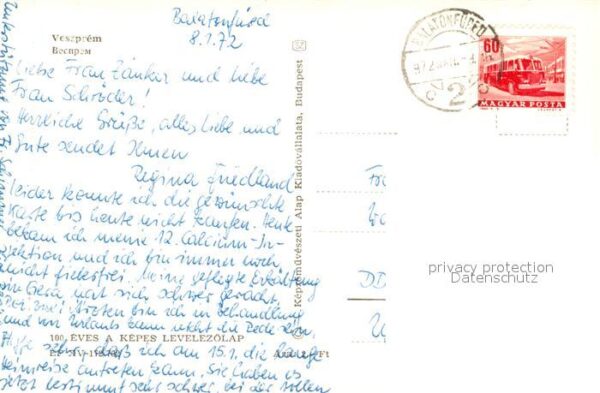 Balatonfüred
8.1.72
Veszprém
Веспрем
Liebe Frau Zänker und liebe
Frau Schröder!
Herzliche Grüße, alles Liebe und
Gute sendet Ihnen
Regina Friedland
Leider konnte ich die gewünschte
Karte bis heute nicht kaufen. Heute
bekam ich meine 12. Calcium-In-
jektion und ich bin immer noch
nicht fieberfrei. Meine gepflegte Erkältung
hat sich schwer gerächt.
Bei zwei Ärzten bin ich in Behandlung
und von Urlaub kann nicht die Rede sein.
Hoffe sehr, daß ich am 15.1. die
Heimreise antreten kann. Sie haben es
jetzt bestimmt sehr schwer, bei der vollen
100 ÉVES A KÉPES LEVELEZŐLAP
Képzőművészeti Alap Kiadóvállalata, Budapest
BALATONFÜRED
2
60
MAGYAR POSTA
DD
privacy protection
Datenschutz